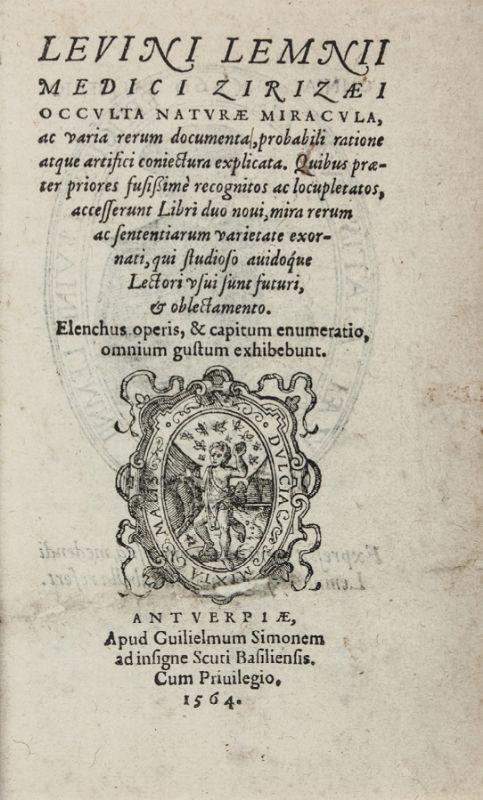 LEVINI LEMNII
MEDICI ZIRIZÆI
OCCVLTA NATVRÆ MIRACVLA,
ac varia rerum documenta, probabili ratione
atque artifici coniectura explicata. Quibus præ-
ter priores fusißimè recognitos ac locupletatos,
accesserunt Libri duo noui, mira rerum
ac sententiarum varietate exor-
nati, qui studioso auidoq́ue
Lectori vsui sunt futuri,
& oblectamento.
Elenchus operis, & capitum enumeratio,
omnium gustum exhibebunt.
DVLCIA
MIXTA
MALIS
ANTVERPIÆ,
Apud Guilielmum Simonem
ad insigne Scuti Basiliensis.
Cum Priuilegio,
1564.